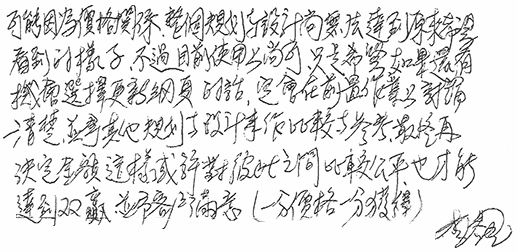 可能因為價格關係,整個規劃與設計尚無法達到原來希望
看到的樣子,不過目前使用上尚可,只是希望如果還有
機會選擇更新網頁的話,定會在前置作業上討論
清楚,並尋其他規劃與設計來作比較與參考,最終再
決定金額,這樣或許對彼此之間比較公平也才能
達到双贏,並市客戶滿意(一分價格一分獲得)